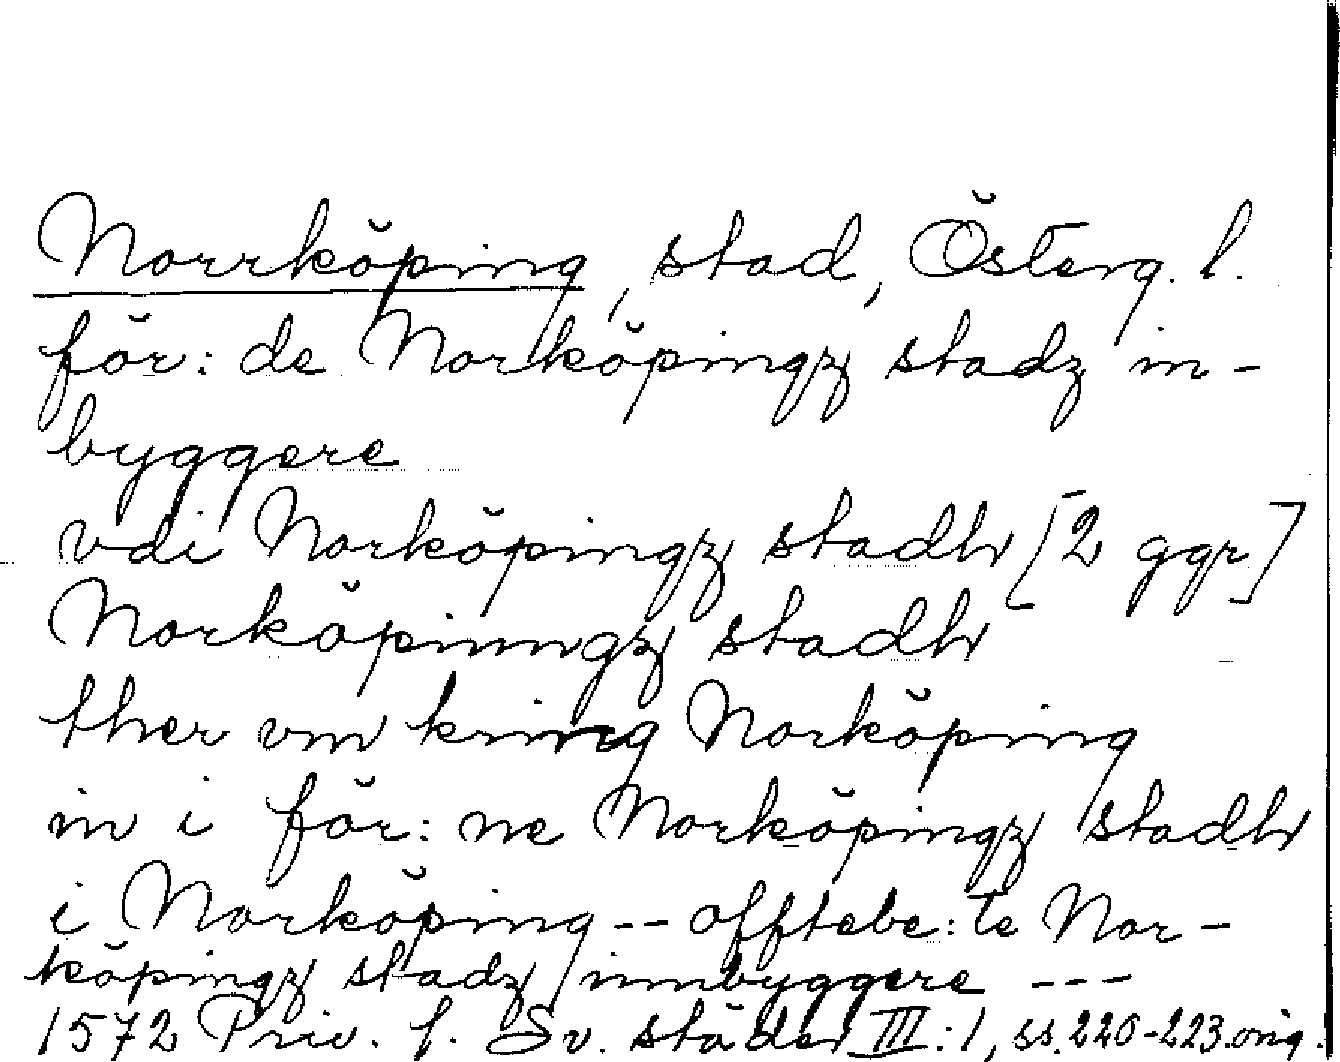 Norrköping, stad, Österg. l.
för: de Norköpingz stadz in-
byggere
vdi Norköpingz stadh [2 ggr]
Norköpinngz stadh
ther vm kring Norköping
in i för: ne Norköpingz stadh
i Norköping -- offtebe: te Nor-
köpingz stadz innbyggere ---
1572 Priv. f. Sv. städer III:1, ss. 220-223. orig.